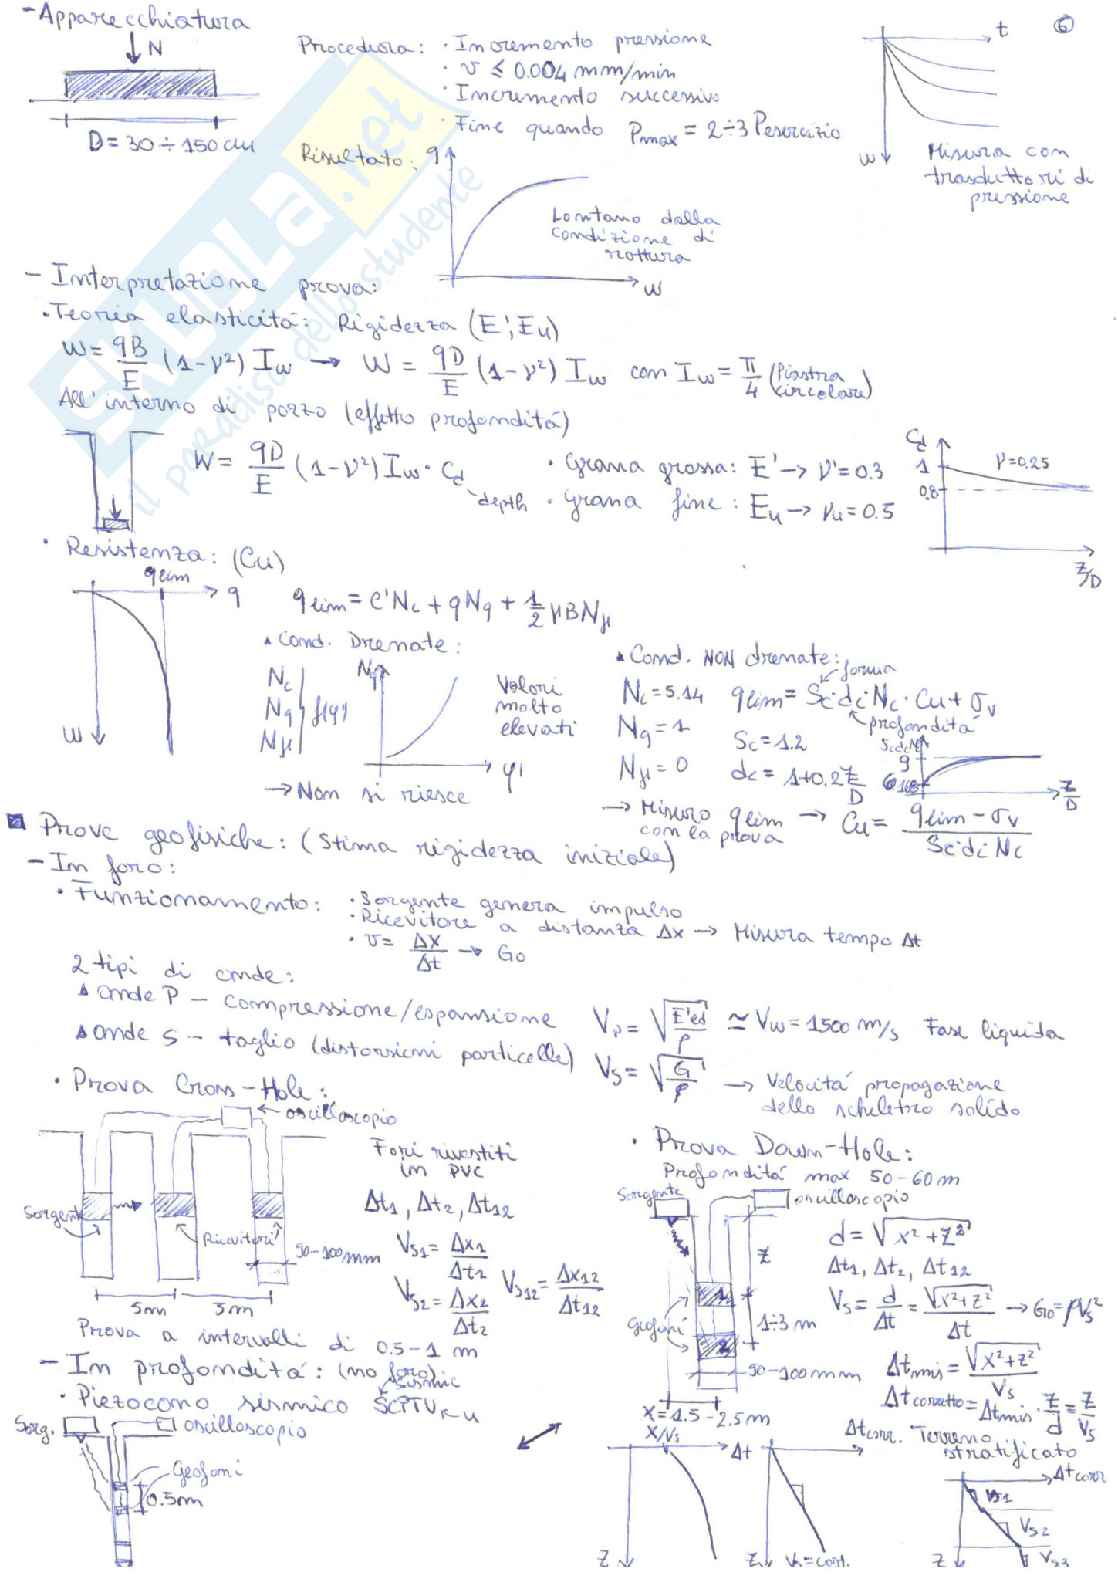 - Apparecchiatura
N
D = 30 ÷ 150 cm
Procedura: · Incremento pressione
· v ≤ 0.004 mm/min
· Incremento successivo
· Fine quando Pmax = 2÷3 Pesercizio
t
6
w
Misura con
trasduttori di
pressione
Risultato:
q
w
Lontano dalla
condizione di
rottura
- Interpretazione prova:
· Teoria elasticità: Rigidezza (E', Eu)
w = qB/E (1-ν²) Iw → w = qD/E (1-ν²) Iw con Iw = π/4 (Piastra circolare)
All'interno di pozzo (effetto profondità)
w = qD/E (1-ν²) Iw · Cd
depth
· Grana grossa: E' → ν' = 0.3
· Grana fine: Eu → νu = 0.5
Cd
1
0.8
ν = 0.25
Z/D
· Resistenza: (Cu)
qlim
q
w
qlim = c'Nc + qNq + 1/2 γBNγ
▲ Cond. Drenate:
Nc
Nq
Nγ
f(φ')
Nq
φ'
Valori
molto
elevati
→ Non si riesce
▲ Cond. NON drenate:
forma
Nc = 5.14 qlim = Sc·dc·Nc·Cu + σv
profondità
Nq = 1
Sc = 1.2
Nγ = 0
dc = 1+0.2 Z/D
ScdcNc
9
6.18
Z/D
→ Misuro qlim
con la prova
→ Cu = (qlim - σv)/(Sc·dc·Nc)
■ Prove geofisiche: (Stima rigidezza iniziale)
- In foro:
· Funzionamento: · Sorgente genera impulso
· Ricevitore a distanza Δx → Misura tempo Δt
· v = Δx/Δt → G0
2 tipi di onde:
▲ onde P - compressione/espansione Vp = √(E'ed/ρ) ≃ Vw = 1500 m/s Fase liquida
▲ onde S - taglio (distorsioni particelle) Vs = √(G/ρ) → Velocità propagazione
dello scheletro solido
· Prova Cross-Hole:
oscilloscopio
Sorgente
Ricevitori
50-100mm
5m
5m
Fori rivestiti
in PVC
Δt1, Δt2, Δt12
Vs1 = Δx1/Δt1
Vs2 = Δx2/Δt2
Vs12 = Δx12/Δt12
Prova a intervalli di 0.5-1 m
· Prova Down-Hole:
Profondità max 50-60m
Sorgente
oscilloscopio
Z
1
2
Geofoni
1÷3 m
50-100mm
X = 1.5-2.5m
d = √(x²+z²)
Δt1, Δt2, Δt12
Vs = d/Δt = √(x²+z²)/Δt → G0 = ρVs²
Δtmis = √(x²+z²)/Vs
Δtcorretto = Δtmis · Z/d = Z/Vs
- In profondità: (no foro)
seismic
· Piezocono sismico SCPTU
Sorg.
oscilloscopio
Geofoni
0.5m
X/Vs
Δt
Z
Δtcorr.
Z
Vs = cost.
Terreno
stratificato
Δtcorr
Vs1
Vs2
Vs3
Z
SKUOLA.net
il paradiso dello studente